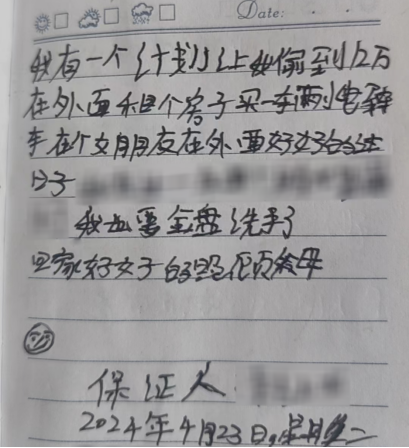 Date:
我有一个计划让我偷到12万
在外面租个房子买一车两小电辞
车在个女朋友在外面好好台生
日子
我也要金盘洗手了
回家好好子的陪伴父母
保证人
2024年4月23日，星期二